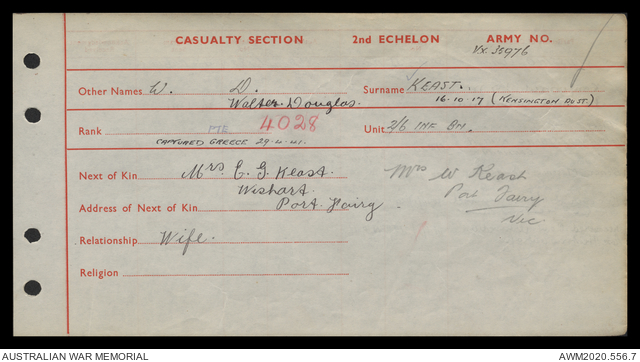 CASUALTY SECTION 2nd ECHELON ARMY NO.
VX 35976
Other Names W. D. Surname KEAST.
Walter Douglas. 16.10.17 (KENSINGTON AUST.)
Rank PTE 4028 Unit 2/6 INF BN.
CAPTURED GREECE 29.4.41.
Next of Kin Mrs E. G. Keast. Mrs W Keast
Wishart. Port Fairy
Address of Next of Kin Port Fairy. Vic
Relationship Wife.
Religion
AUSTRALIAN WAR MEMORIAL AWM2020.556.7